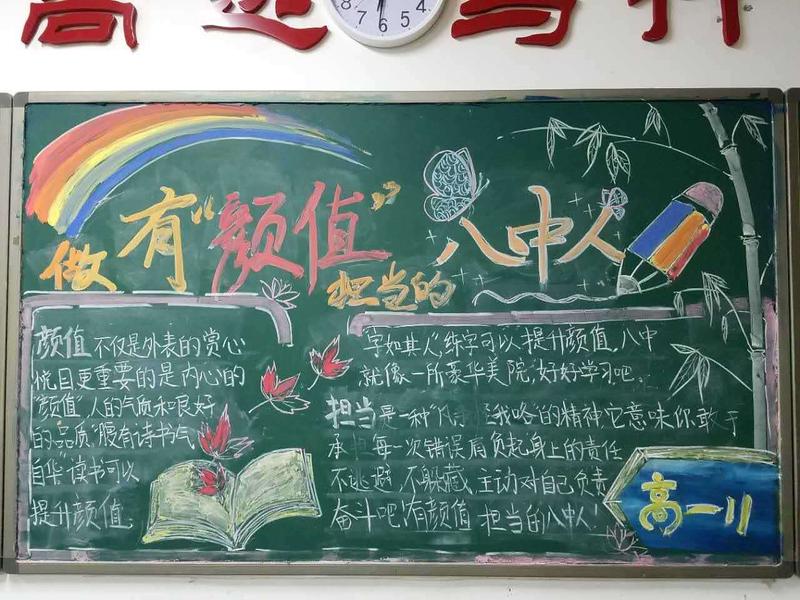 8 7 6 5 4
做有“颜值”担当的八中人
颜值不仅是外表的赏心
悦目更重要的是内心的
“颜值”人的气质和良好
的品质“腹有诗书气
自华”读书可以
提升颜值
“字如其人”练字可以提升颜值，八中
就像一所豪华美院，好好学习吧。
担当是一种“我的精神它意味你敢于
承担每一次错误肩负起身上的责任
不逃避，不躲藏，主动对自己负责
奋斗吧！有颜值 担当的八中人！
高一11